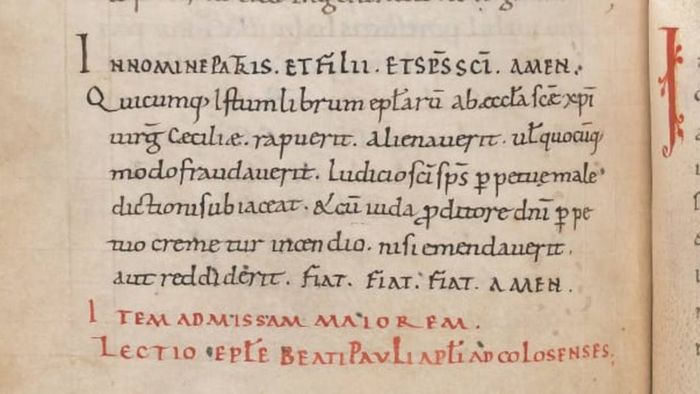 IN NOMINE PATRIS. ET FILII. ET SPS SCI. AMEN.
Quicumq; istum librum eplarū ab aeccła scae xpi
uirg Ceciliae. rapuerit. alienauerit. uł quocūq;
modo fraudauerit. Iudicio sci sps ꝑpetuę male
dictioni subiaceat. & cū iuda ꝓditore dni ꝑpe
tuo cremetur incendio. nisi emendauerit.
aut reddiderit. fiat. FIAT. FIAT. AMEN.
ITEM AD MISSAM MAIOREM.
LECTIO EPŁE BEATI PAVLI APŁI AD COLOSENSES;